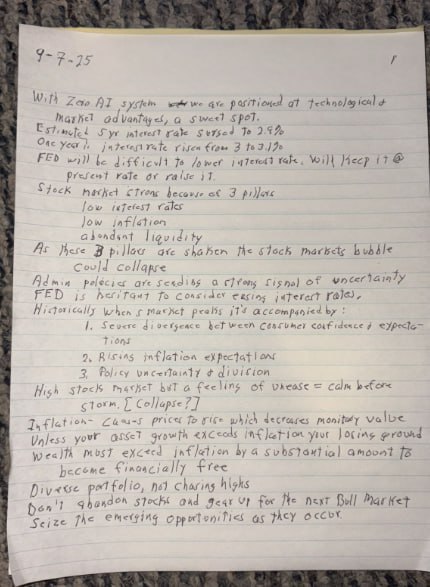 9-7-25
1
With Zero AI system we are positioned at technological &
market advantages, a sweet spot.
Estimated 5yr interest rate sursed to 2.9%
One year % interest rate risen from 3 to 3.1%
FED will be difficult to lower interest rate. Will keep it @
present rate or raise it.
Stock market strong because of 3 pillars
low interest rates
low inflation
abundant liquidity
As these 3 pillars are shaken the stock markets bubble
could collapse
Admin policies are sending a strong signal of uncertainty
FED is hesitant to consider easing interest rates.
Historically when s market peaks it's accompanied by:
1. Severe divergence between consumer confidence & expecta-
tions
2. Rising inflation expectations
3. Policy uncertainty & division
High stock market but a feeling of unease = calm before
storm. [Collapse?]
Inflation- causes prices to rise which decreases monitary value
Unless your asset growth exceeds inflation your losing ground
Wealth must exceed inflation by a substantial amount to
become financially free
Diverse portfolio, not chasing highs
Don't abandon stocks and gear up for the next Bull Market
Seize the emerging opportunities as they occur